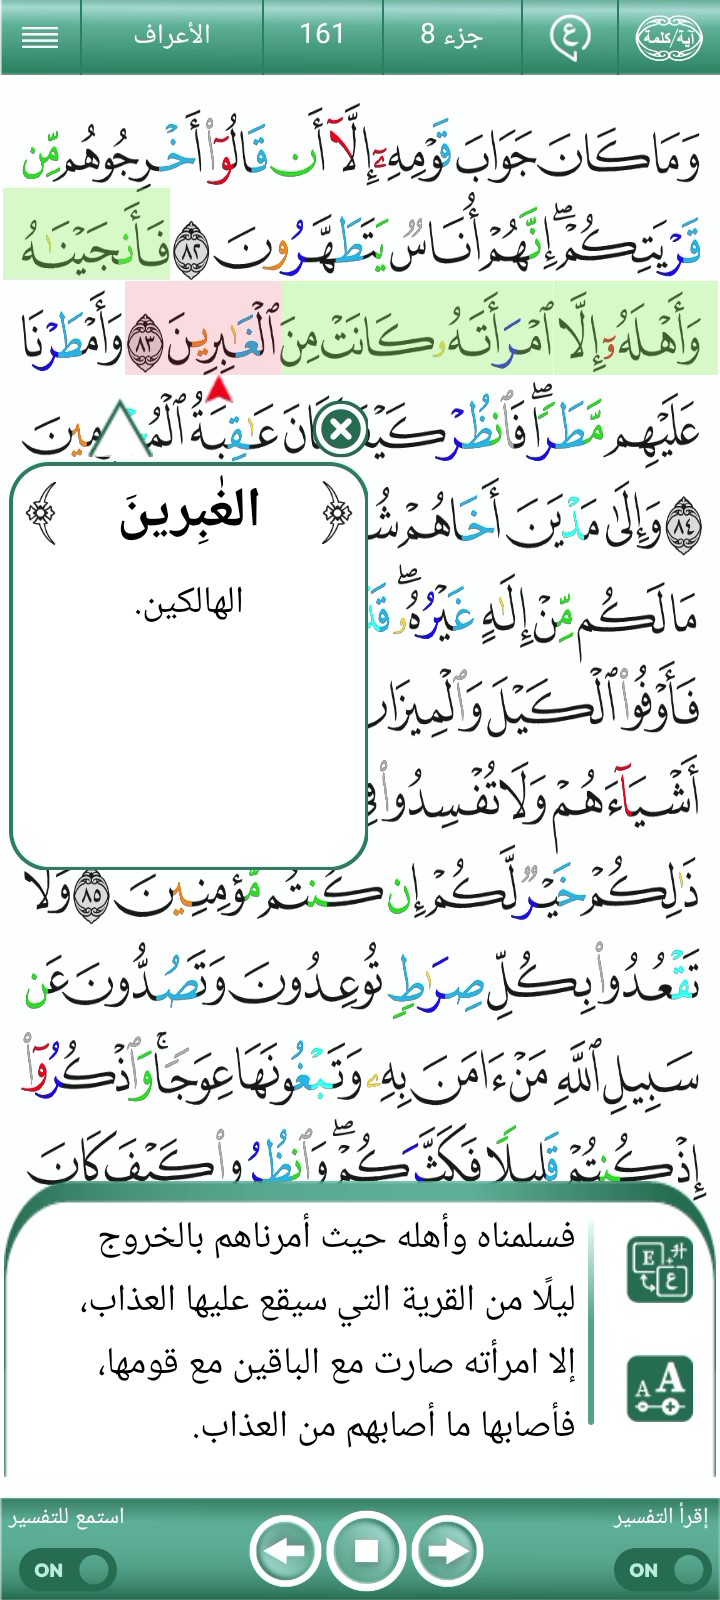 آية/كلمة
ع
جزء 8
161
الأعراف
وَمَا كَانَ جَوَابَ قَوْمِهِۦٓ إِلَّآ أَن قَالُوٓا۟ أَخْرِجُوهُم مِّن
قَرْيَتِكُمْ ۖ إِنَّهُمْ أُنَاسٌ يَتَطَهَّرُونَ ٨٢ فَأَنجَيْنَٰهُ
وَأَهْلَهُۥٓ إِلَّا ٱمْرَأَتَهُۥ كَانَتْ مِنَ ٱلْغَٰبِرِينَ ٨٣ وَأَمْطَرْنَا
عَلَيْهِم مَّطَرًا ۖ فَٱنظُرْ كَيْفَ كَانَ عَٰقِبَةُ ٱلْمُجْرِمِينَ
٨٤ وَإِلَىٰ مَدْيَنَ أَخَاهُمْ
مَا لَكُم مِّنْ إِلَٰهٍ غَيْرُهُۥ ۖ
فَأَوْفُوا۟ ٱلْكَيْلَ وَٱلْمِيزَانَ
أَشْيَآءَهُمْ وَلَا تُفْسِدُوا۟ فِى
ذَٰلِكُمْ خَيْرٌ لَّكُمْ إِن كُنتُم مُّؤْمِنِينَ ٨٥ وَلَا
تَقْعُدُوا۟ بِكُلِّ صِرَٰطٍ تُوعِدُونَ وَتَصُدُّونَ عَن
سَبِيلِ ٱللَّهِ مَنْ ءَامَنَ بِهِۦ وَتَبْغُونَهَا عِوَجًا ۚ وَٱذْكُرُوٓا۟
إِذْ كُنتُمْ قَلِيلًا فَكَثَّرَكُمْ ۖ وَٱنظُرُوا۟ كَيْفَ كَانَ
الغَٰبِرينَ
الهالكين.
فسلمناه وأهله حيث أمرناهم بالخروج
ليلًا من القرية التي سيقع عليها العذاب،
إلا امرأته صارت مع الباقين مع قومها،
فأصابها ما أصابهم من العذاب.
E
ع
A A
إقرأ التفسير
استمع للتفسير
ON
ON